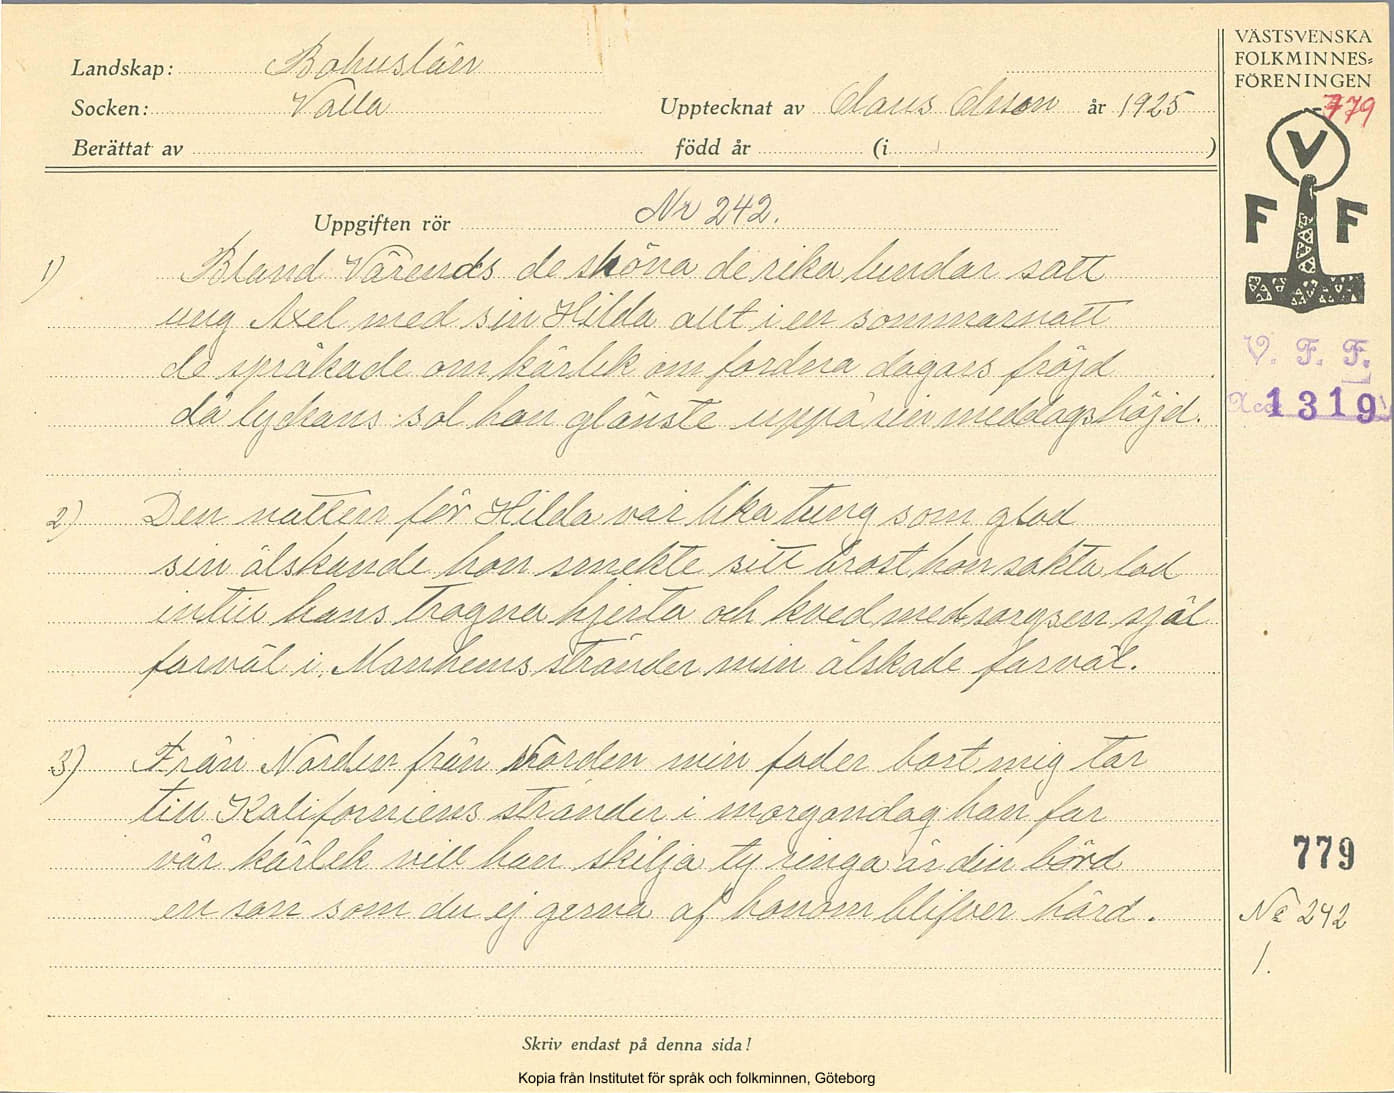 Landskap: Bohuslän
Socken: Valla
Upptecknat av Claus Olsson år 1925
Berättat av
född år (i )
VÄSTSVENSKA
FOLKMINNES=
FÖRENINGEN
779
V
F F
V. F. F.
Acc 1319
Uppgiften rör Nr 242.
1) Bland Värends de sköna de rika lundar satt
ung Axel med sin Hilda allt i en sommarnatt
de språkade om kärlek om fordna dagars fröjd
då lyckans sol hon glänste uppå sin meddagshöjd.
2) Den natten för Hilda var lika tung som glad
sin älskande hon smekte sitt brost hon sakta lad
intill hans trogna hjerta och kved med sorgsen själ
farväl i Manhems stränder min älskade farväl.
3) Från Norden från Norden min fader bort mig tar
till Kaliforniens stränder i morgondag han far
vår kärlek vill han skilja ty ringa är din börd
en son som du ej gerna af honom blifver hörd.
779
No 242
1.
Skriv endast på denna sida!
Kopia från Institutet för språk och folkminnen, Göteborg